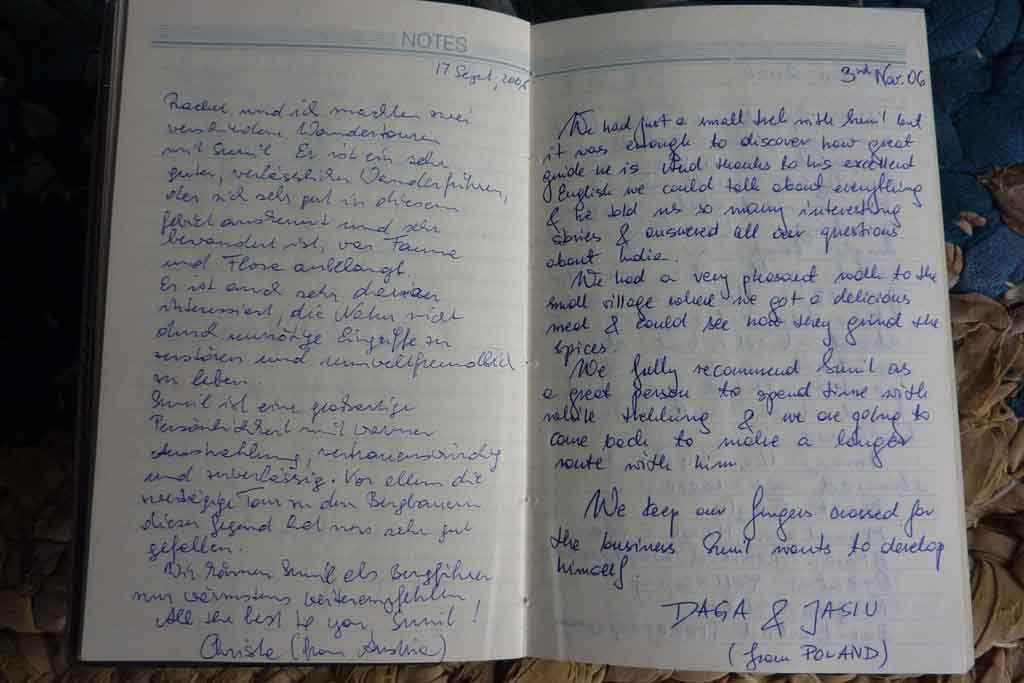 NOTES
17 Sept, 2006
Rachel und ich machten zwei
verschiedene Wandertouren
mit Sunil. Er ist ein sehr
guter, verlässlicher Wanderführer,
der sich sehr gut in diesem
Gebiet auskennt und sehr
bewandert ist, was Fauna
und Flora anbelangt.
Er ist auch sehr daran
interessiert, die Natur nicht
durch unnötige Eingriffe zu
zerstören und umweltfreundlich
zu leben.
Sunil ist eine großartige
Persönlichkeit mit warmer
Ausstrahlung, vertrauenswürdig
und zuverlässig. Vor allem die
Tour zu den Bergbauern
dieser Gegend hat uns sehr gut
gefallen.
Wir können Sunil als Bergführer
nur wärmstens weiterempfehlen
All the best to you, Sunil!
Christa (from Austria)
3nd Nov. 06
We had just a small trek with Sunil but
it was enough to discover how great
guide he is. And thanks to his excellent
English we could talk about everything
& he told us so many interesting
stories & answered all our questions
about India.
We had a very pleasant walk to the
small village where we got a delicious
meal & could see how they grind the
spices.
We fully recommend Sunil as
a great person to spend time with
while trekking & we are going to
come back to make a longer
route with him.
We keep our fingers crossed for
the business Sunil wants to develop
himself.
DAGA & JASIU
(from POLAND)